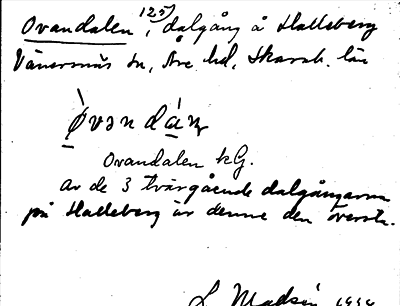 Ovandalen, 125) dalgång å Halleberg
Vänersnäs sn, Åse hd, Skarab. län
Òvəndáɳ
Ovandalen kG.
Av de 3 tvärgående dalgångarna
på Halleberg är denne den översta.
L. Madsén